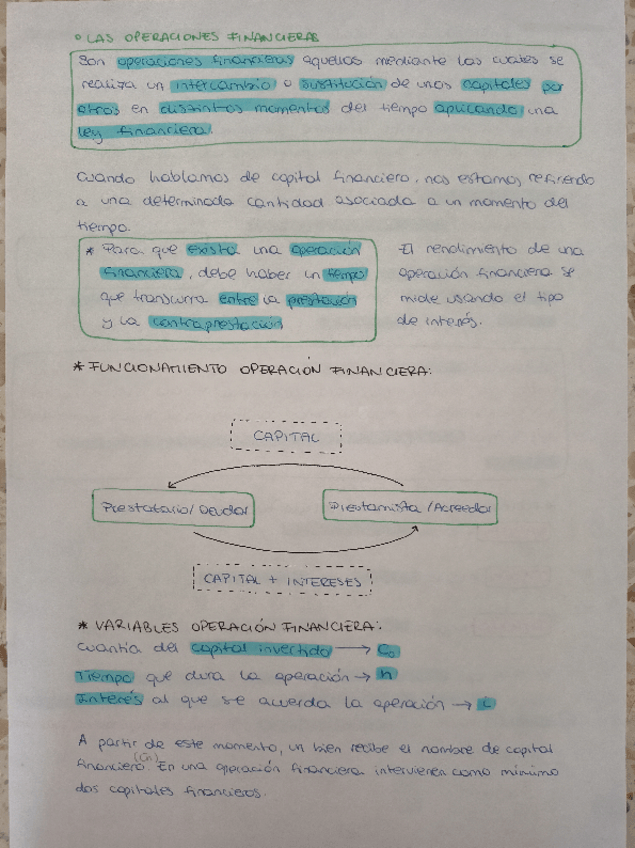 ° LAS OPERACIONES FINANCIERAS
Son operaciones financieras aquellas mediante las cuales se
realiza un intercambio o sustitución de unos capitales por
otros en distintos momentos del tiempo aplicando una
ley financiera.
Cuando hablamos de capital financiero, nos estamos refiriendo
a una determinada cantidad asociada a un momento del
tiempo.
* Para que exista una operación
financiera, debe haber un tiempo
que transcurra entre la prestación
y la contraprestación
El rendimiento de una
operación financiera se
mide usando el tipo
de interés.
* FUNCIONAMIENTO OPERACIÓN FINANCIERA:
CAPITAL
Prestatario/Deudor
Prestamista/Acreedor
CAPITAL + INTERESES
* VARIABLES OPERACIÓN FINANCIERA:
Cuantía del capital invertido → C₀
Tiempo que dura la operación → n
Interés al que se acuerda la operación → i
A partir de este momento, un bien recibe el nombre de capital
financiero (Cn). En una operación financiera intervienen como mínimo
dos capitales financieros.